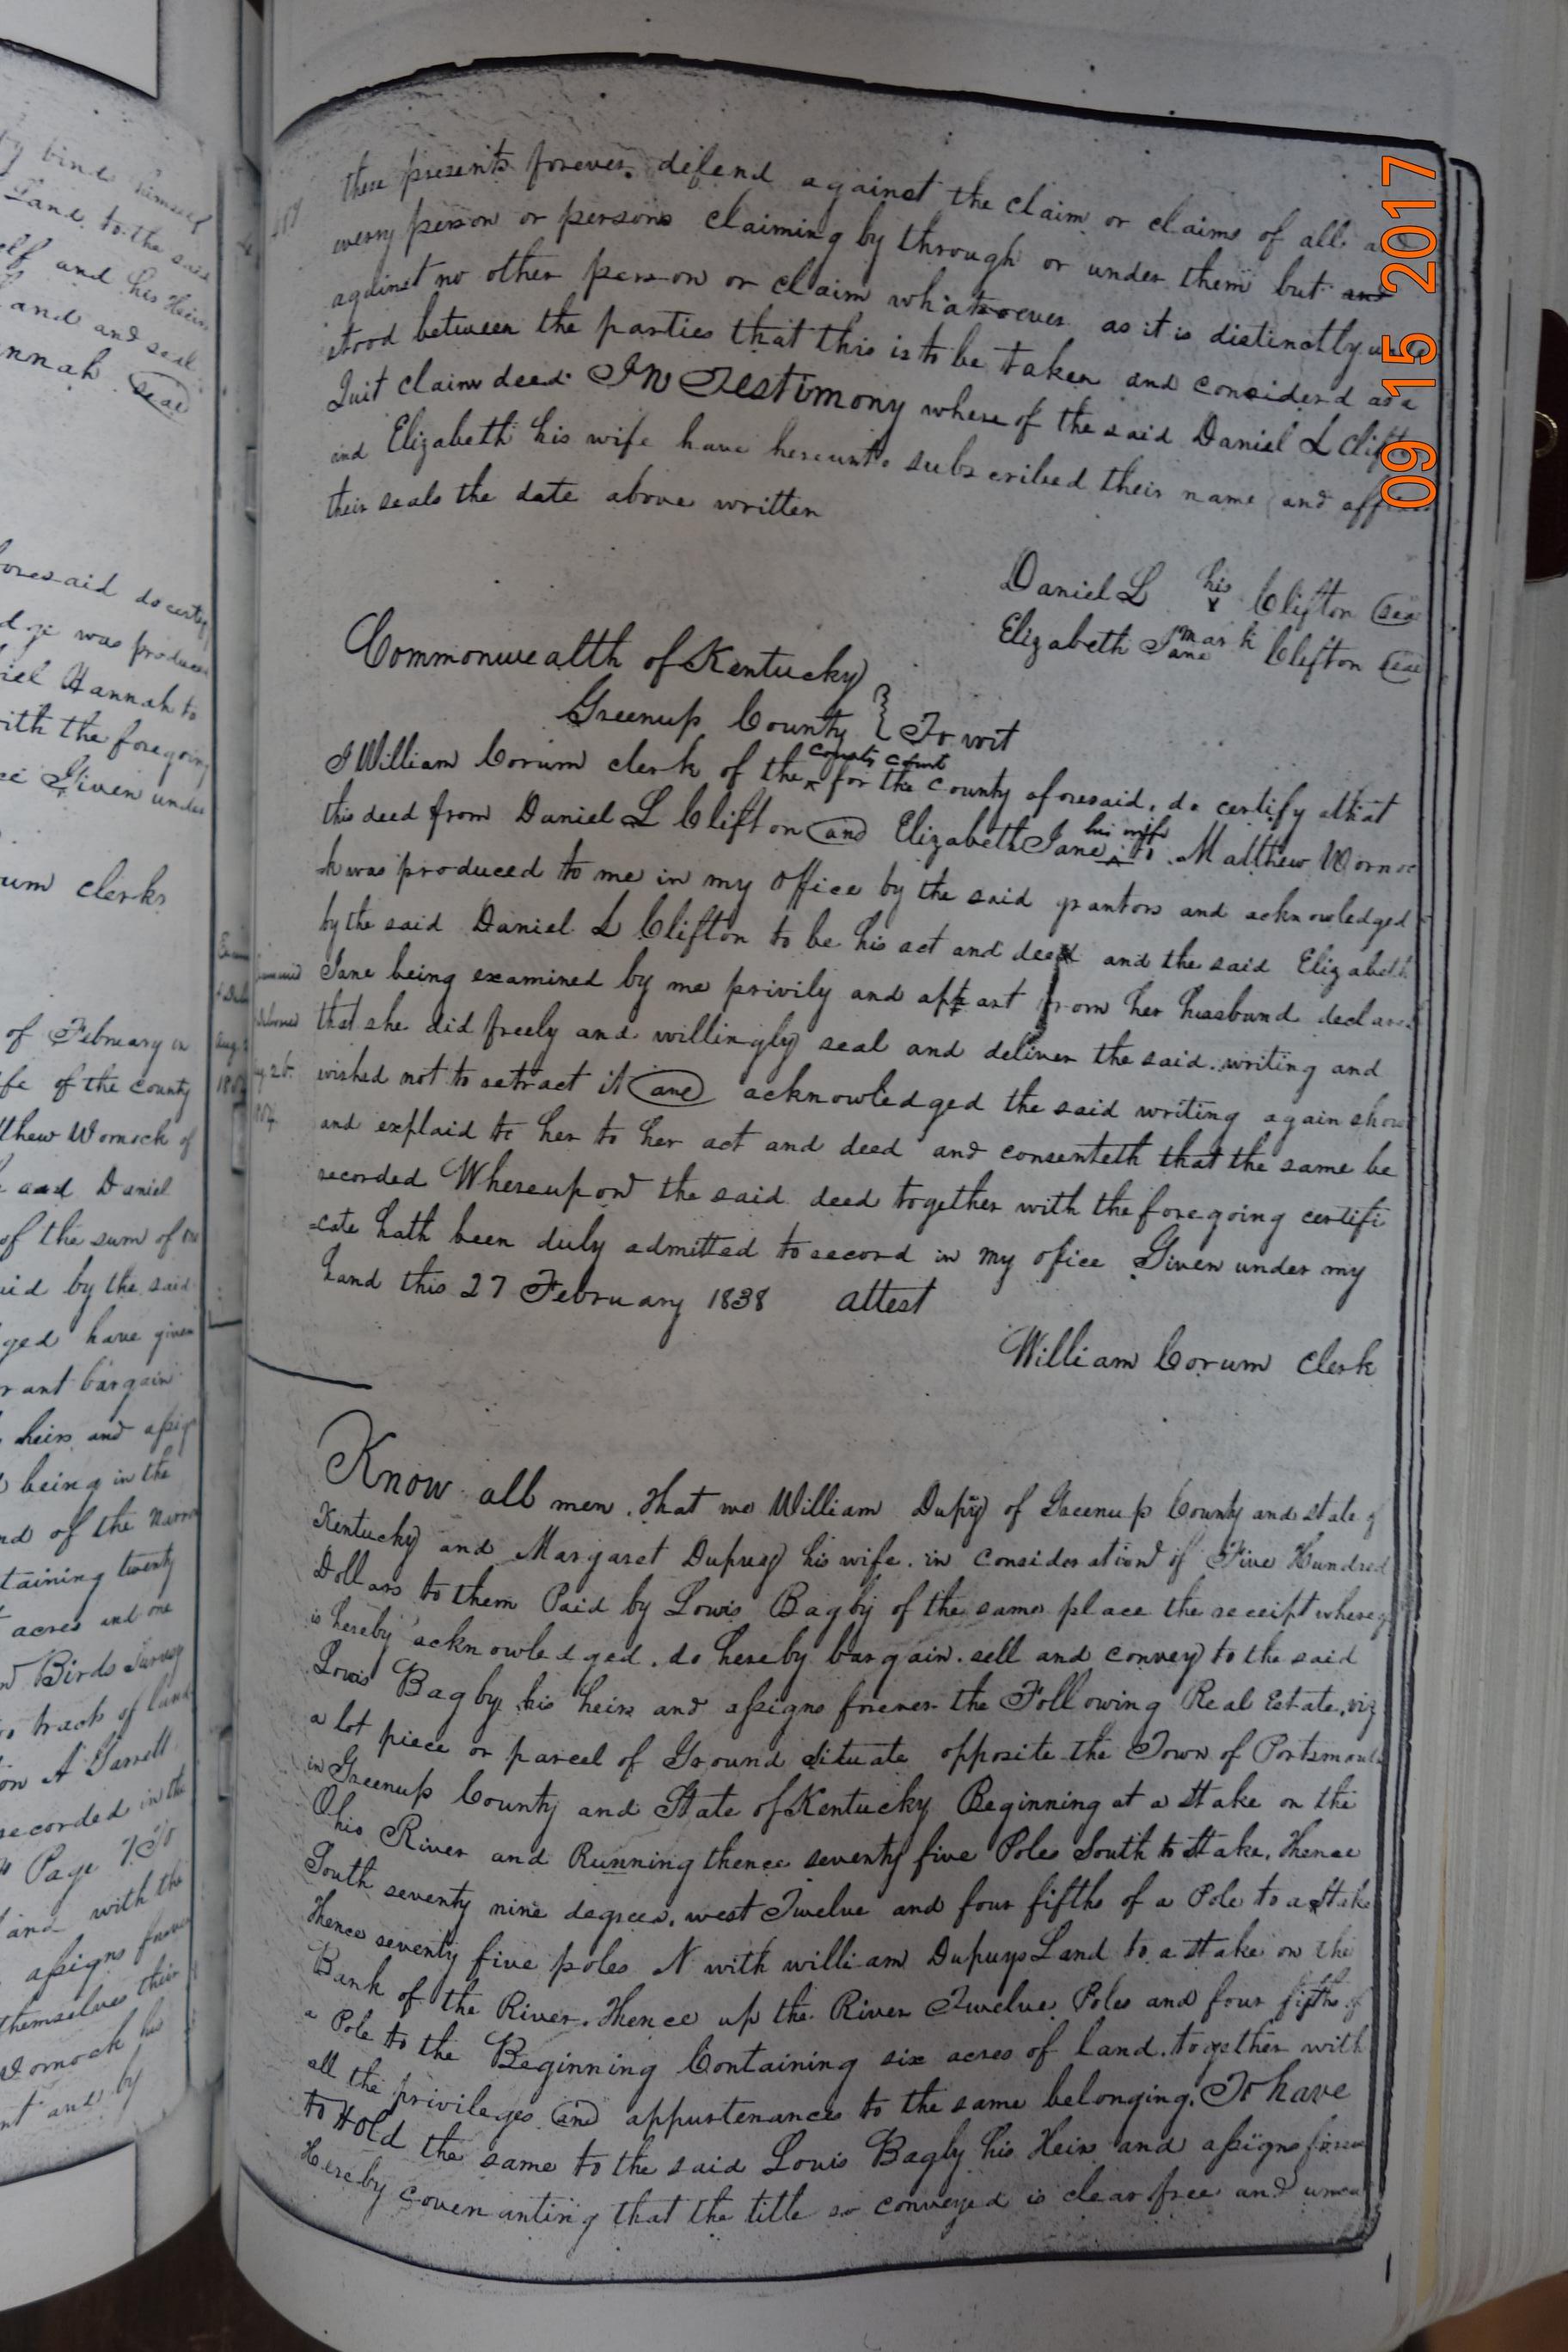 by bind himself
Land to the said
self and his Heirs
and and seal
nnah Seal
oresaid do certify
dge was produced
iel Hannah to
with the foregoing
Given under
um clerk
of February in
fe of the county
thew Wornock of
and Daniel
of the sum of
id by the said
ged have given
rant bargain
heirs and assigns
being in the
nd of the
taining twenty
acres and one
Birds Survey
tracts of land
on A Jarrell
recorded in the
Page
and with the
assigns forever
themselves their
Wornock his
nt and by
these presents forever. defend against the claim or claims of all a
every person or persons claiming by through or under them but and
against no other person or claim whatsoever as it is distinctly under
stood between the parties that this is to be taken and considerd as a
Quit claim deed In Testimony where of the said Daniel L Clifton
and Elizabeth his wife have hereunto subscribed their name and affixed
their seals the date above written
Daniel L his x Clifton Seal
Elizabeth Jane mark Clifton Seal
Commonwealth of Kentucky
Greenup County } To wit
I William Corum clerk of the county court for the County aforesaid, do certify that
this deed from Daniel L Clifton and Elizabeth Jane his wife to Matthew Wornoc
k was produced to me in my office by the said grantors and acknowledged
by the said Daniel L Clifton to be his act and deed and the said Elizabeth
Jane being examined by me privily and appart from her husband declared
that she did freely and willingly seal and deliver the said writing and
wished not to retract it and acknowledged the said writing again shown
and explaid to her to her act and deed and consenteth that the same be
recorded Whereupon the said deed together with the foregoing certifi
=cate hath been duly admitted to record in my ofice Given under my
hand this 27 February 1838 attest
William Corum Clerk
Know all men that we William Dupuy of Greenup County and state of
Kentucky and Margaret Dupuy his wife. in consideration of Five Hundred
Dollars to them Paid by Lewis Bagby of the same place the receipt whereof
is hereby acknowledged. do hereby bargain. sell and convey to the said
Louis Bagby his heirs and assigns forever the Following Real Estate, viz
a lot piece or parcel of Ground situate opposite the Town of Portsmouth
in Greenup County and State of Kentucky Beginning at a Stake on the
Ohio River and Running thence seventy five Poles South to Stake, thence
South seventy nine degrees, west Twelve and four fifths of a Pole to a Stake
thence seventy five poles N with william Dupuys Land to a stake on the
Bank of the River. thence up the River Twelve Poles and four fifths of
a Pole to the Beginning Containing six acres of land. together with
all the privileges and appurtenances to the same belonging. To have
to Hold the same to the said Louis Bagby his Heirs and assigns forever
Hereby covenanting that the title so conveyed is clear free and
09 15 2017